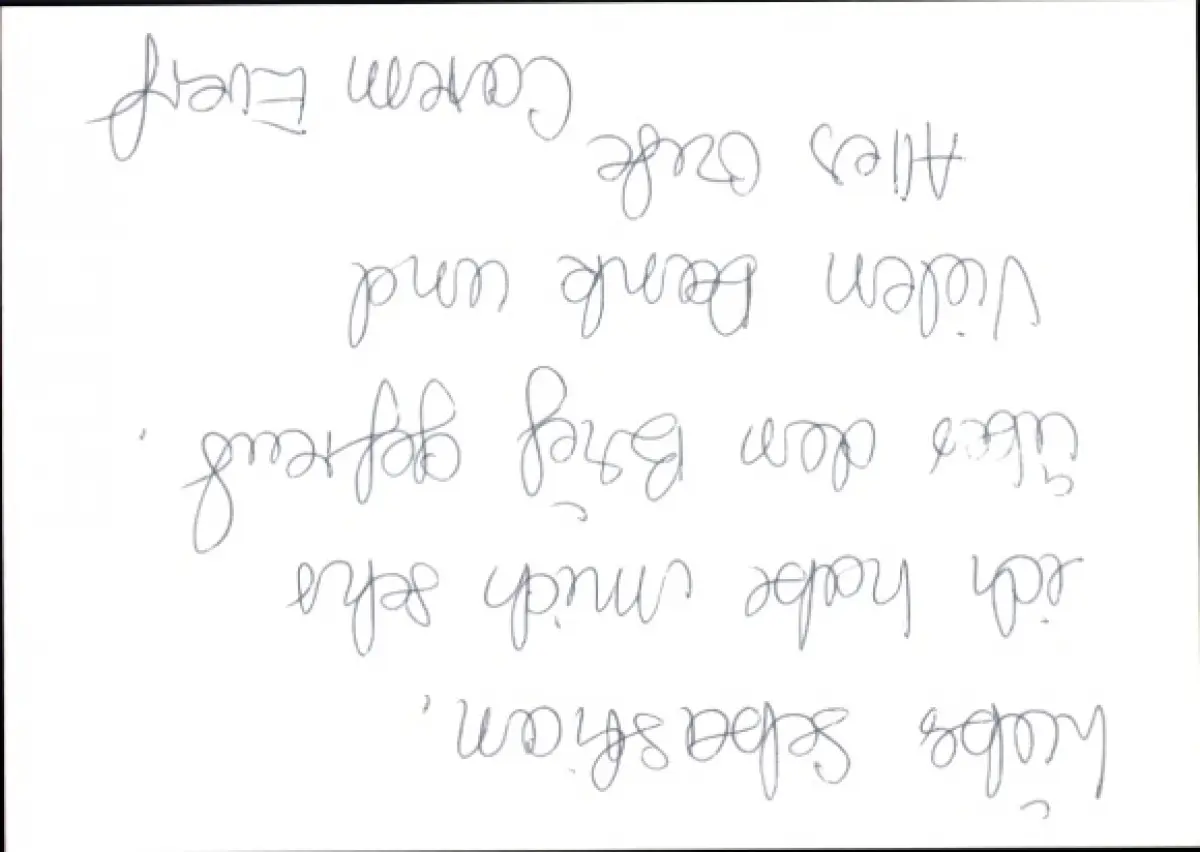 Lieber Sebastian,
ich habe mich sehr
über den Brief gefreut.
Vielen Dank und
Alles Gute